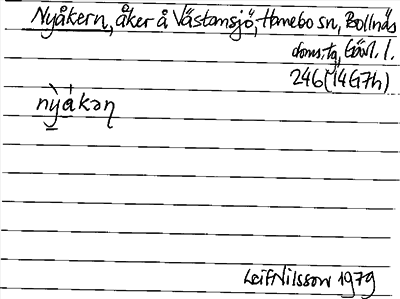 Nyåkern, åker å Västansjö, Hanebo sn, Bollnäs
doms:tg, Gävl. l.
246 (14G7h)
nỳákəɳ
Leif Nilsson 1979